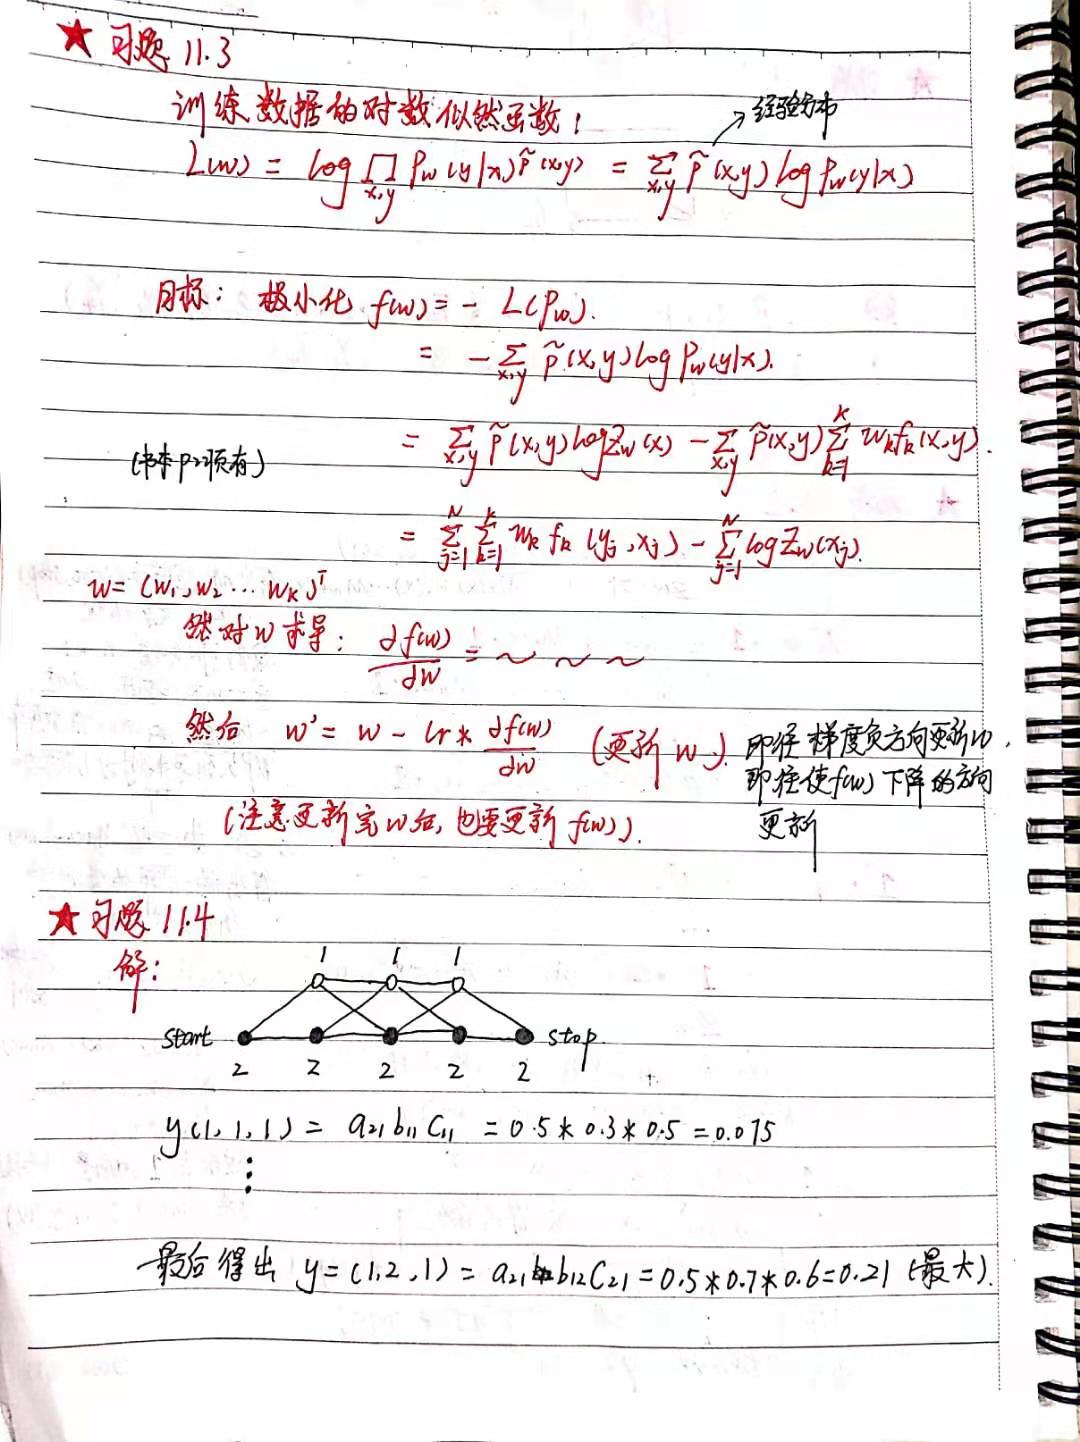 ★ 习题 11.3
训练数据的对数似然函数:
经验分布
L(w) = log ∏_{x,y} P_w(y|x)^{p̃(x,y)} = ∑_{x,y} p̃(x,y) log P_w(y|x)
目标: 极小化 f(w) = - L(P_w).
= - ∑_{x,y} p̃(x,y) log P_w(y|x).
= ∑_{x,y} p̃(x,y) log Z_w(x) - ∑_{x,y} p̃(x,y) ∑_{k=1}^{K} w_k f_k(x,y).
(书本 有)
= ∑_{j=1}^{N} ∑_{k=1}^{K} w_k f_k(y_j, x_j) - ∑_{j=1}^{N} log Z_w(x_j).
w = (w_1, w_2 ... w_K)^T
对 w 求导: ∂f(w)/∂w = ~ ~ ~
然后 w' = w - lr * ∂f(w)/∂w (更新 w). 即往梯度负方向更新w,
即往使f(w)下降的方向
更新
(注意更新完w后, 也要更新 f(w)).
★ 习题 11.4
解:
1 1 1
start stop.
2 2 2 2 2
y(1, 1, 1) = a_{21} b_{11} C_{11} = 0.5 * 0.3 * 0.5 = 0.075
⋮
最后得出 y = (1,2,1) = a_{21} b_{12} C_{21} = 0.5 * 0.7 * 0.6 = 0.21 (最大).